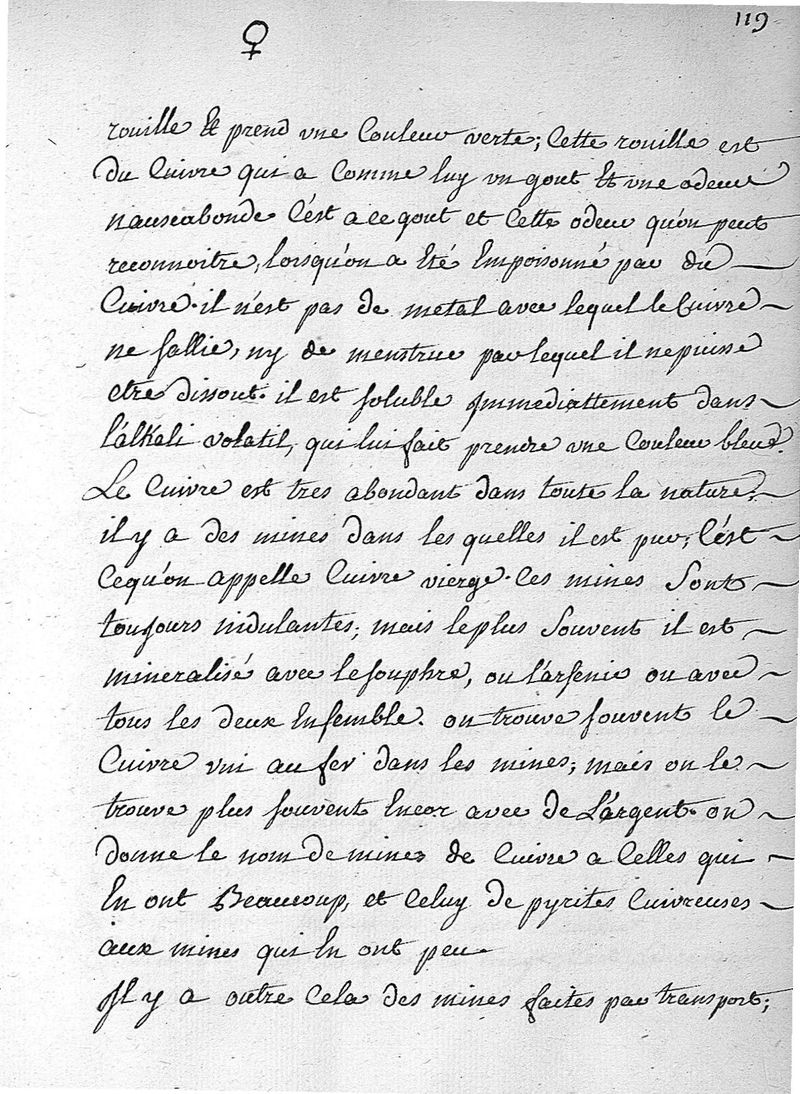 119
♀
rouille Et prend vne Couleur verte; Cette rouille est
Du Cuivre qui a Comme luy vn gout Et vne odeur
nauseabonde. C'est a ce gout et Cette odeur qu'on peut
reconnoitre, lorsqu'on a Eté Empoisonné par du
Cuivre. il n'est pas de metal avec lequel le Cuivre
ne s'allie, ny de menstrue par lequel il ne puisse
etre dissout. il est soluble Immediattement dans
l'alkali volatil, qui lui fait prendre vne Couleur bleue.
Le Cuivre est tres abondant dans toute la nature.
il y a des mines dans les quelles il est pur, C'est
Ce qu'on appelle Cuivre vierge. Ces mines Sont
toujours nidulantes; mais le plus Souvent il est
mineralisé avec le souphre, ou l'arsenic ou avec
tous les deux Ensemble. on trouve souvent le
Cuivre vni au fer dans les mines; mais on le
trouve plus souvent Encor avec de L'argent. on
donne le nom de mines de Cuivre a Celles qui
En ont Beaucoup, et Celuy de pyrites Cuivreuses
aux mines qui En ont peu.
Il y a outre Cela des mines faites par transport;